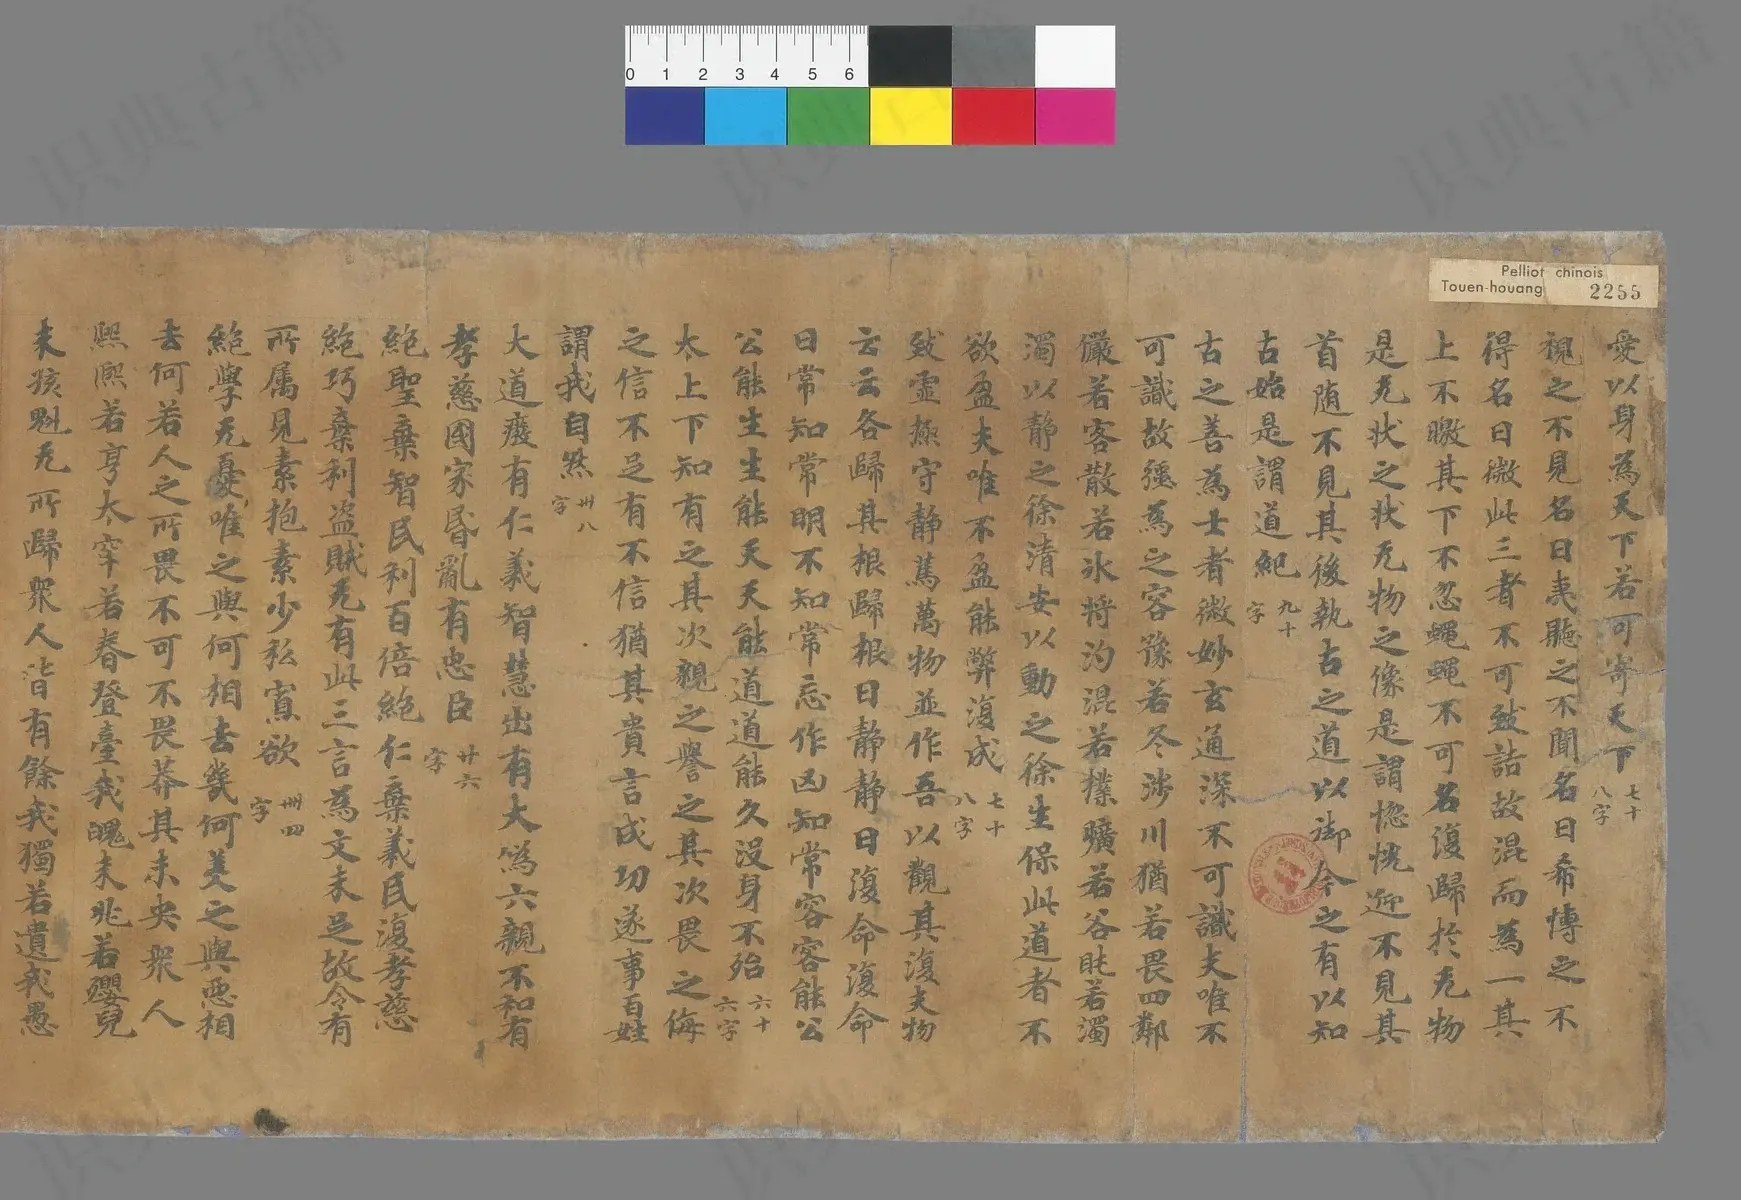 Pelliot chinois
Touen-houang 2255
0 1 2 3 4 5 6
愛以身為天下若可寄天下七十八字
視之不見名曰夷聽之不聞名曰希慱之不
得名曰微此三者不可致詰故混而為一其
上不曒其下不忽蠅蠅不可名復歸於无物
是无状之状无物之像是謂惚恍迎不見其
首随不見其後執古之道以御今之有以知
古始是謂道紀九十字
古之善為士者微妙玄通深不可識夫唯不
可識故强為之容豫若冬渉川猶若畏四鄰
儼若客散若氷將汋混若樸曠若谷肫若濁
濁以静之徐清安以動之徐生保此道者不
欲盈夫唯不盈能弊復成七十八字
致虚極守静萬萬物並作吾以觀其復夫物
云云各歸其根歸根曰静静曰復命復命
曰常知常明不知常忘作凶知常容容能公
公能生生能天天能道道能久没身不殆六十六字
太上下知有之其次親之譽之其次畏之侮
之信不足有不信猶其貴言成功遂事百姓
謂我自然卌八字
大道癈有仁義智慧出有大為六親不和有
孝慈國家昬亂有忠臣廿六字
絶聖棄智民利百倍絶仁棄義民復孝慈
絶巧棄利盗賊无有此三言為文未足故令有
所属見素抱素少私寡欲卌四字
絶學无憂唯之與何相去幾何美之與悪相
去何若人之所畏不可不畏莽其未央衆人
熈熈若享太牢若春登臺我魄未兆若嬰兒
未孩魁无所歸衆人皆有餘我獨若遺我愚
识典古籍